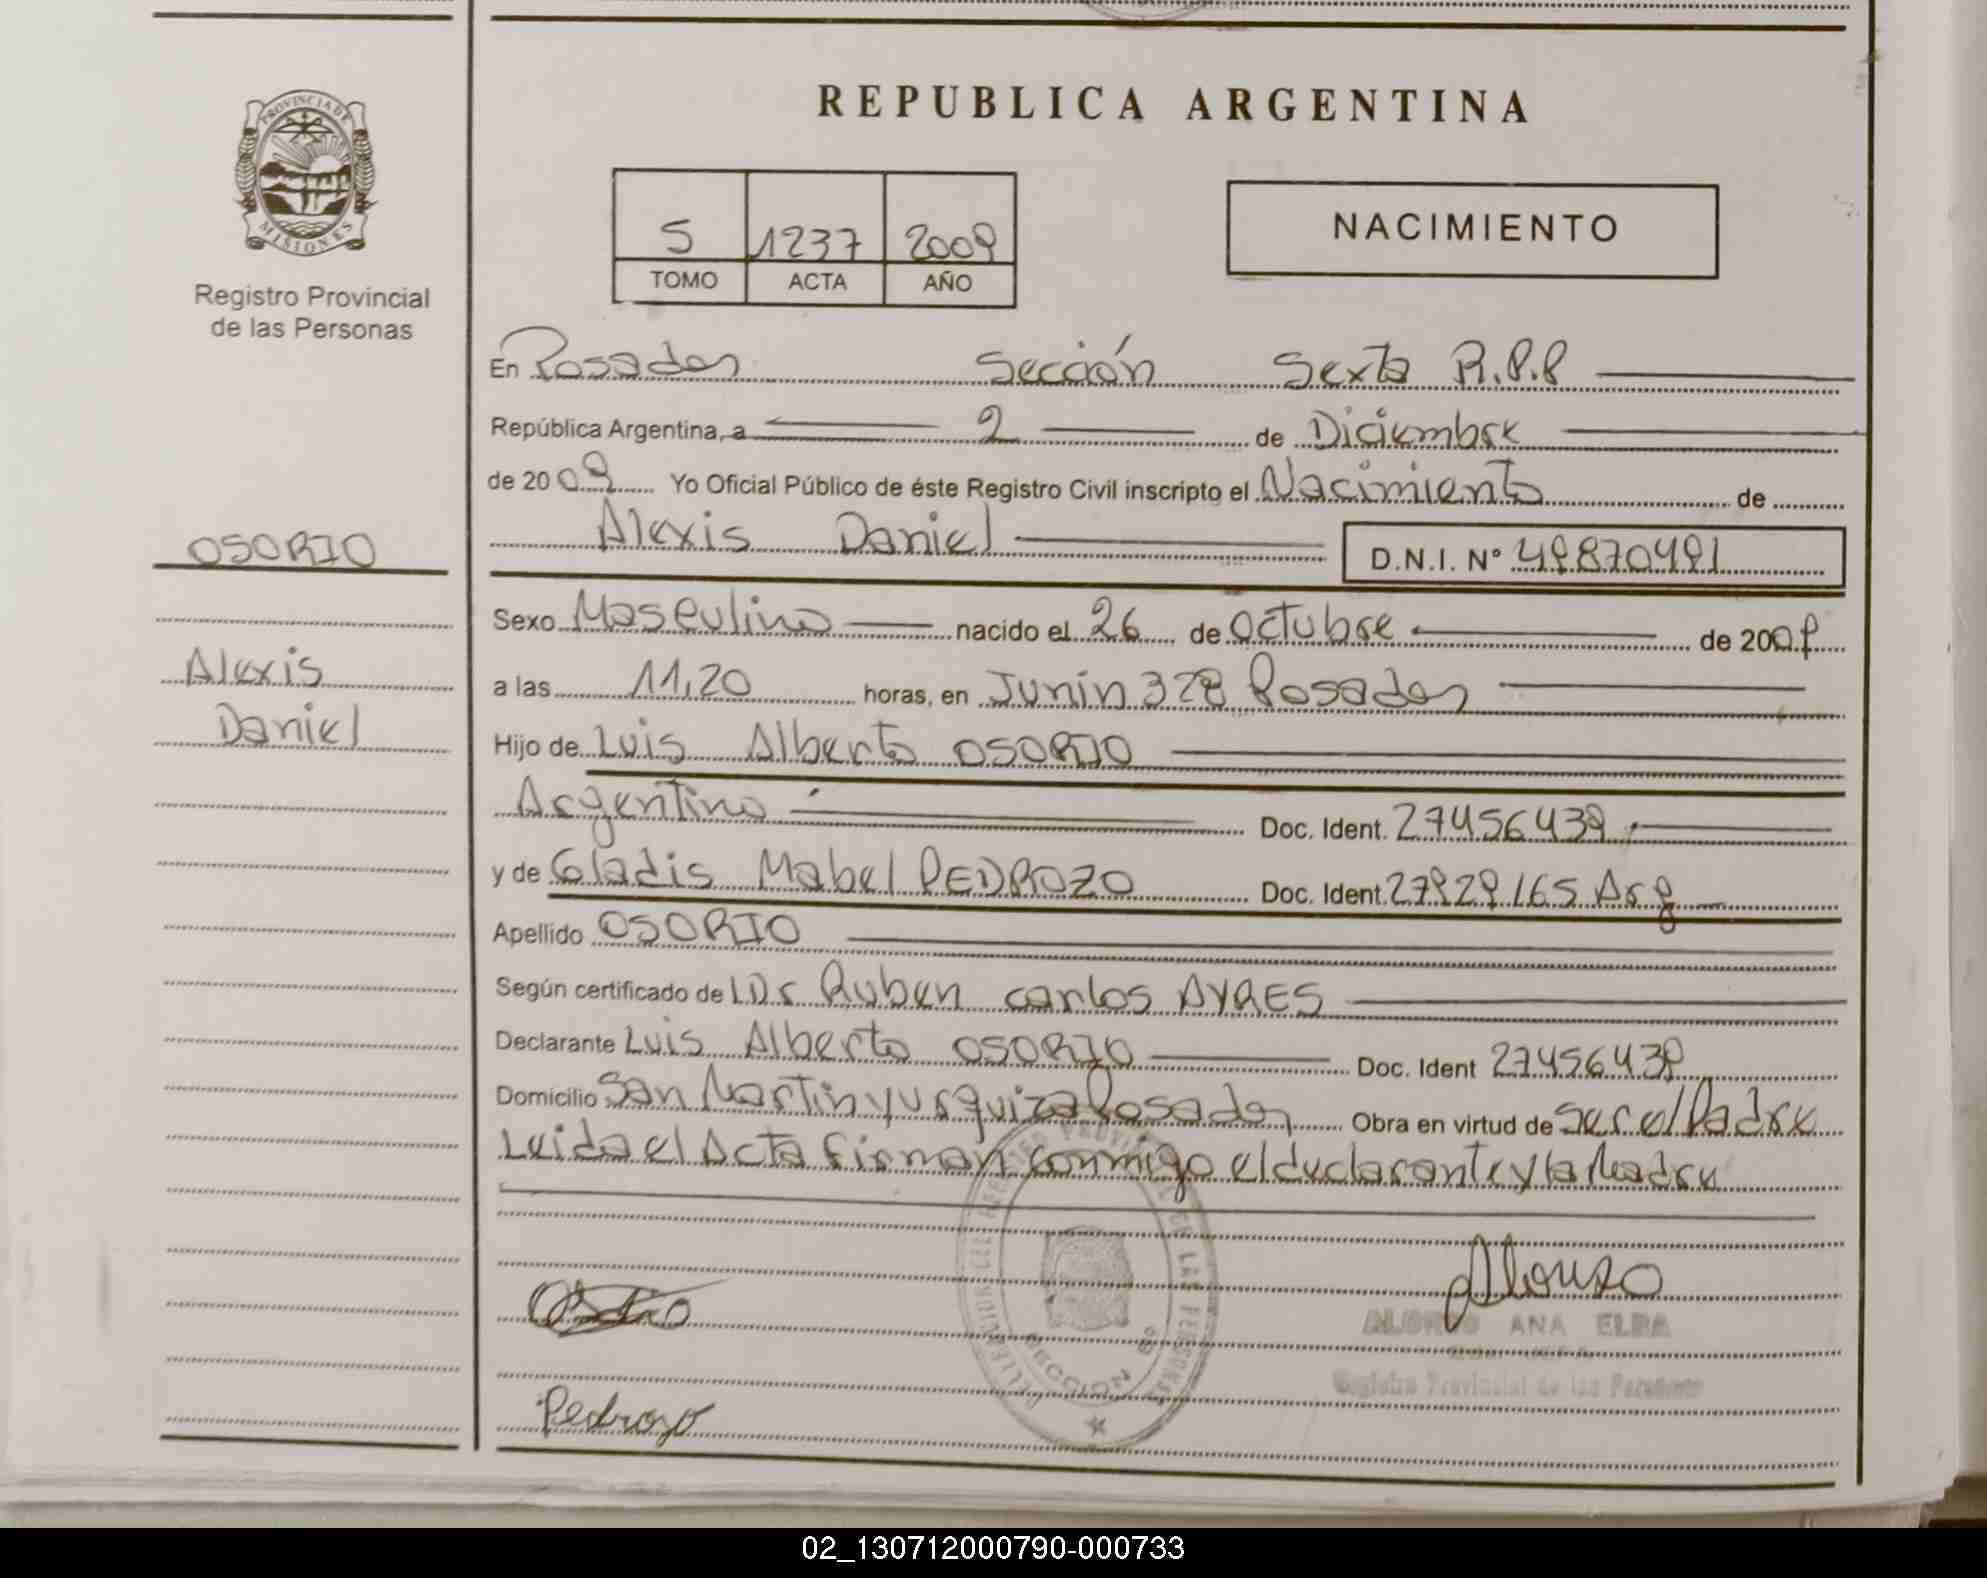 REPUBLICA ARGENTINA
PROVINCIA DE
MISIONES
Registro Provincial
de las Personas
5 1237 2009
TOMO ACTA AÑO
NACIMIENTO
En Posadas Sección Sexta R.P.P
República Argentina, a 2 de Diciembre
de 2009 Yo Oficial Público de éste Registro Civil inscripto el Nacimiento de
Alexis Daniel D.N.I. Nº
OSORIO
Alexis
Daniel
Sexo Masculino nacido el 26 de Octubre de 2009
a las 11,20 horas, en Junín 328 Posadas
Hijo de Luis Alberto OSORIO
Argentino Doc. Ident. 27456439
y de Gladis Mabel PEDROZO Doc. Ident. Arg
Apellido OSORIO
Según certificado de l Dr Ruben Carlos AYRES
Declarante Luis Alberto OSORIO Doc. Ident 27456439
Domicilio San Martin y Urquiza Posadas Obra en virtud de ser el Padre
Leida el Acta firman conmigo el declarante y la Madre
Alonso
ALONSO ANA ELBA
Registro Provincial de las Personas
SECCION 6ª
Pedrozo
02_130712000790-000733